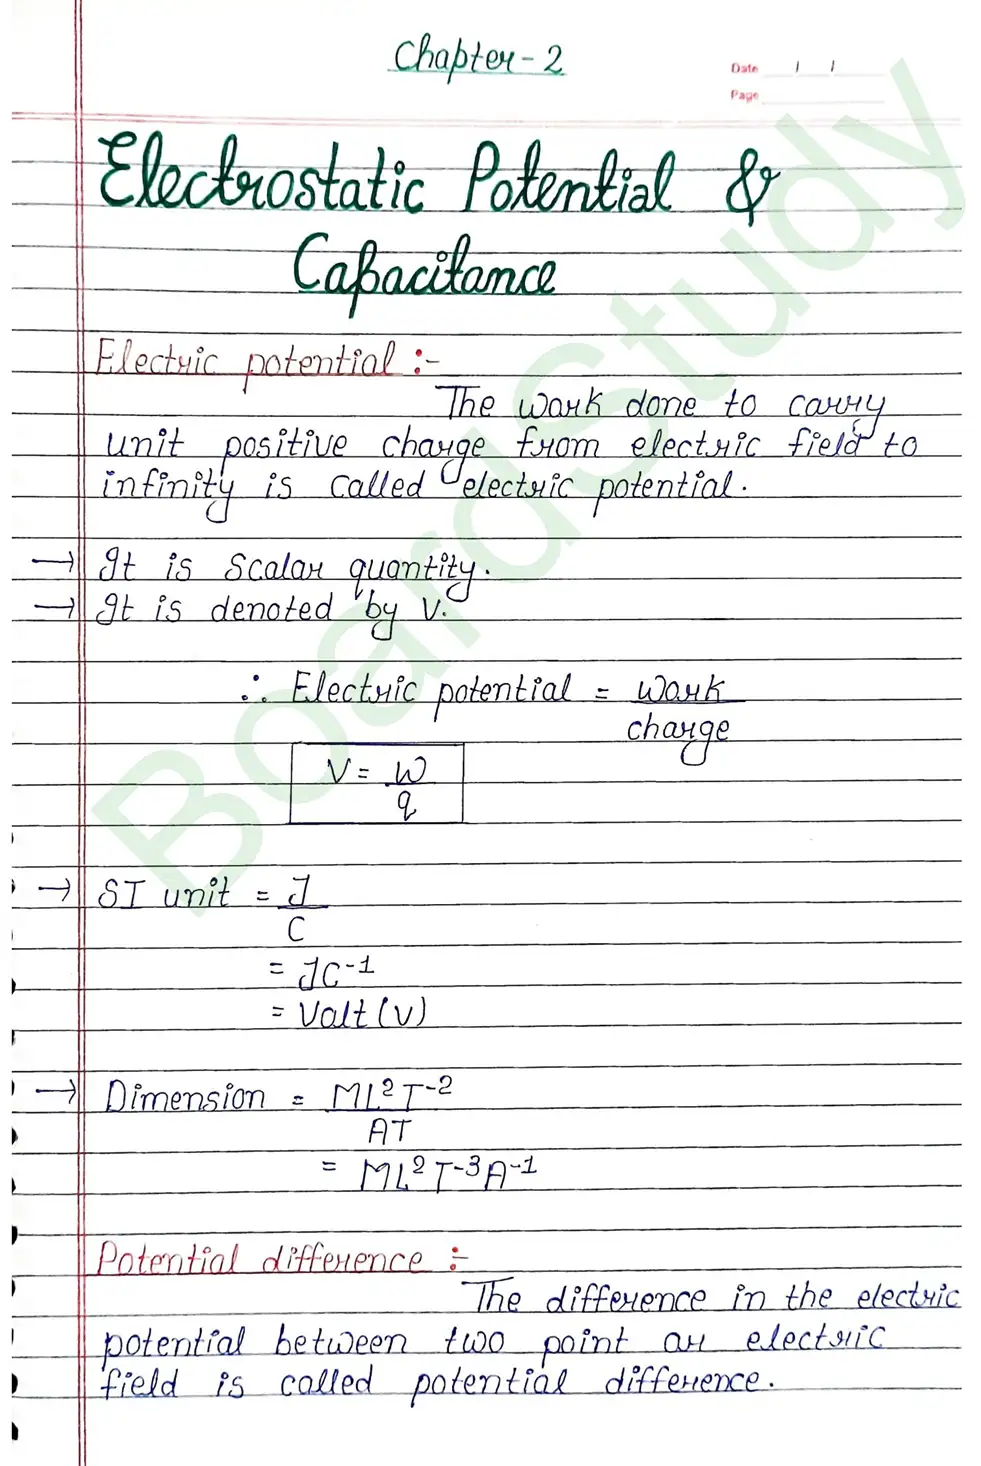 Chapter-2
Date / /
Page
Electrostatic Potential &
Capacitance
Electric potential :-
The work done to carry
unit positive charge from electric field to
infinity is called electric potential.
→ It is scalar quantity.
→ It is denoted by V.
∴ Electric potential = work
charge
V = W
q
→ SI unit = J
C
= JC⁻¹
= Valt (V)
→ Dimension = ML²T⁻²
AT
= ML²T⁻³A⁻¹
Potential difference :-
The difference in the electric
potential between two point or electric
field is called potential difference.
BoardStudy